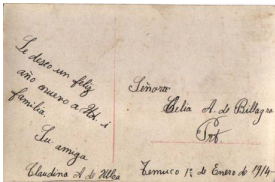 Le deseo un feliz
año nuevo a Ud i
familia.
Su amiga
Claudina A de Ulloa
Señora
Celia A. de Villagra
Pte.
Temuco 1º de Enero de 1914